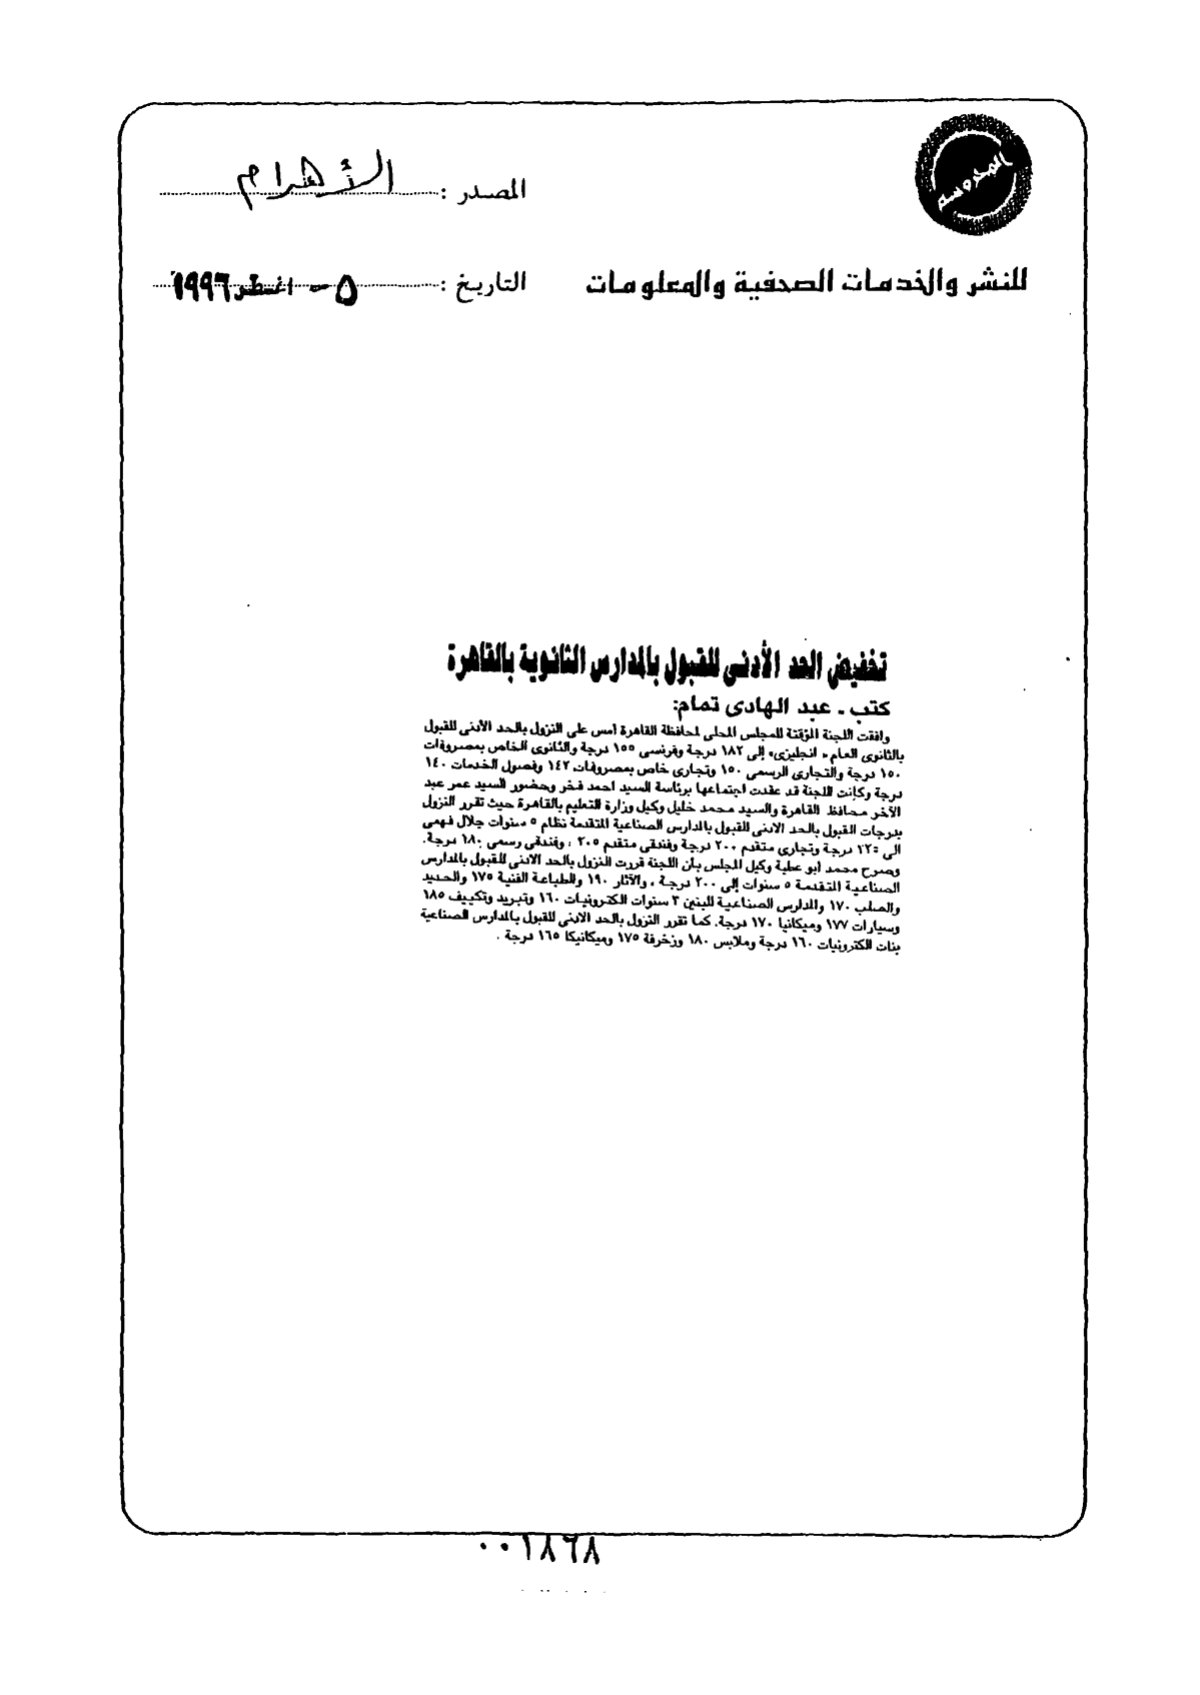 المصدر : الأهرام
للنشر والخدمات الصحفية والمعلومات
التاريخ : ٥ - أغسطس ١٩٩٦
تخفيض الحد الأدنى للقبول بالمدارس الثانوية بالقاهرة
كتب ـ عبد الهادى تمام:
وافقت اللجنة المؤقتة للمجلس المحلى لمحافظة القاهرة امس على النزول بالحد الأدنى للقبول
بالثانوى العام « انجليزى» إلى ١٨٢ درجة وفرنسى ١٥٥ درجة والثانوى الخاص بمصروفات
١٥٠ درجة والتجارى الرسمى ١٥٠ وتجارى خاص بمصروفات ١٤٢ وفصول الخدمات ١٤٠
درجة وكانت اللجنة قد عقدت اجتماعها برئاسة السيد احمد فخر وحضور السيد عمر عبد
الآخر محافظ القاهرة والسيد محمد خليل وكيل وزارة التعليم بالقاهرة حيث تقرر النزول
بدرجات القبول بالحد الادنى للقبول بالمدارس الصناعية المتقدمة نظام ٥ سنوات جلال فهمى
الى درجة وتجارى متقدم ٢٠٠ درجة وفندقى متقدم ٢٠٥ ، وفندقى رسمى ١٨٠ درجة.
وصرح محمد ابو عطية وكيل المجلس بأن اللجنة قررت النزول بالحد الادنى للقبول بالمدارس
الصناعية المتقدمة ٥ سنوات إلى ٢٠٠ درجة ، والآثار ١٩٠ والطباعة الفنية ١٧٥ والحديد
والصلب ١٧٠ والمدارس الصناعية للبنين ٣ سنوات الكترونيات ١٦٠ وتبريد وتكييف ١٨٥
وسيارات ١٧٧ وميكانيا ١٧٠ درجة. كما تقرر النزول بالحد الادنى للقبول بالمدارس الصناعية
بنات الكترونيات ١٦٠ درجة وملابس ١٨٠ وزخرفة ١٧٥ وميكانيكا ١٦٥ درجة .
٠٠١٨٦٨